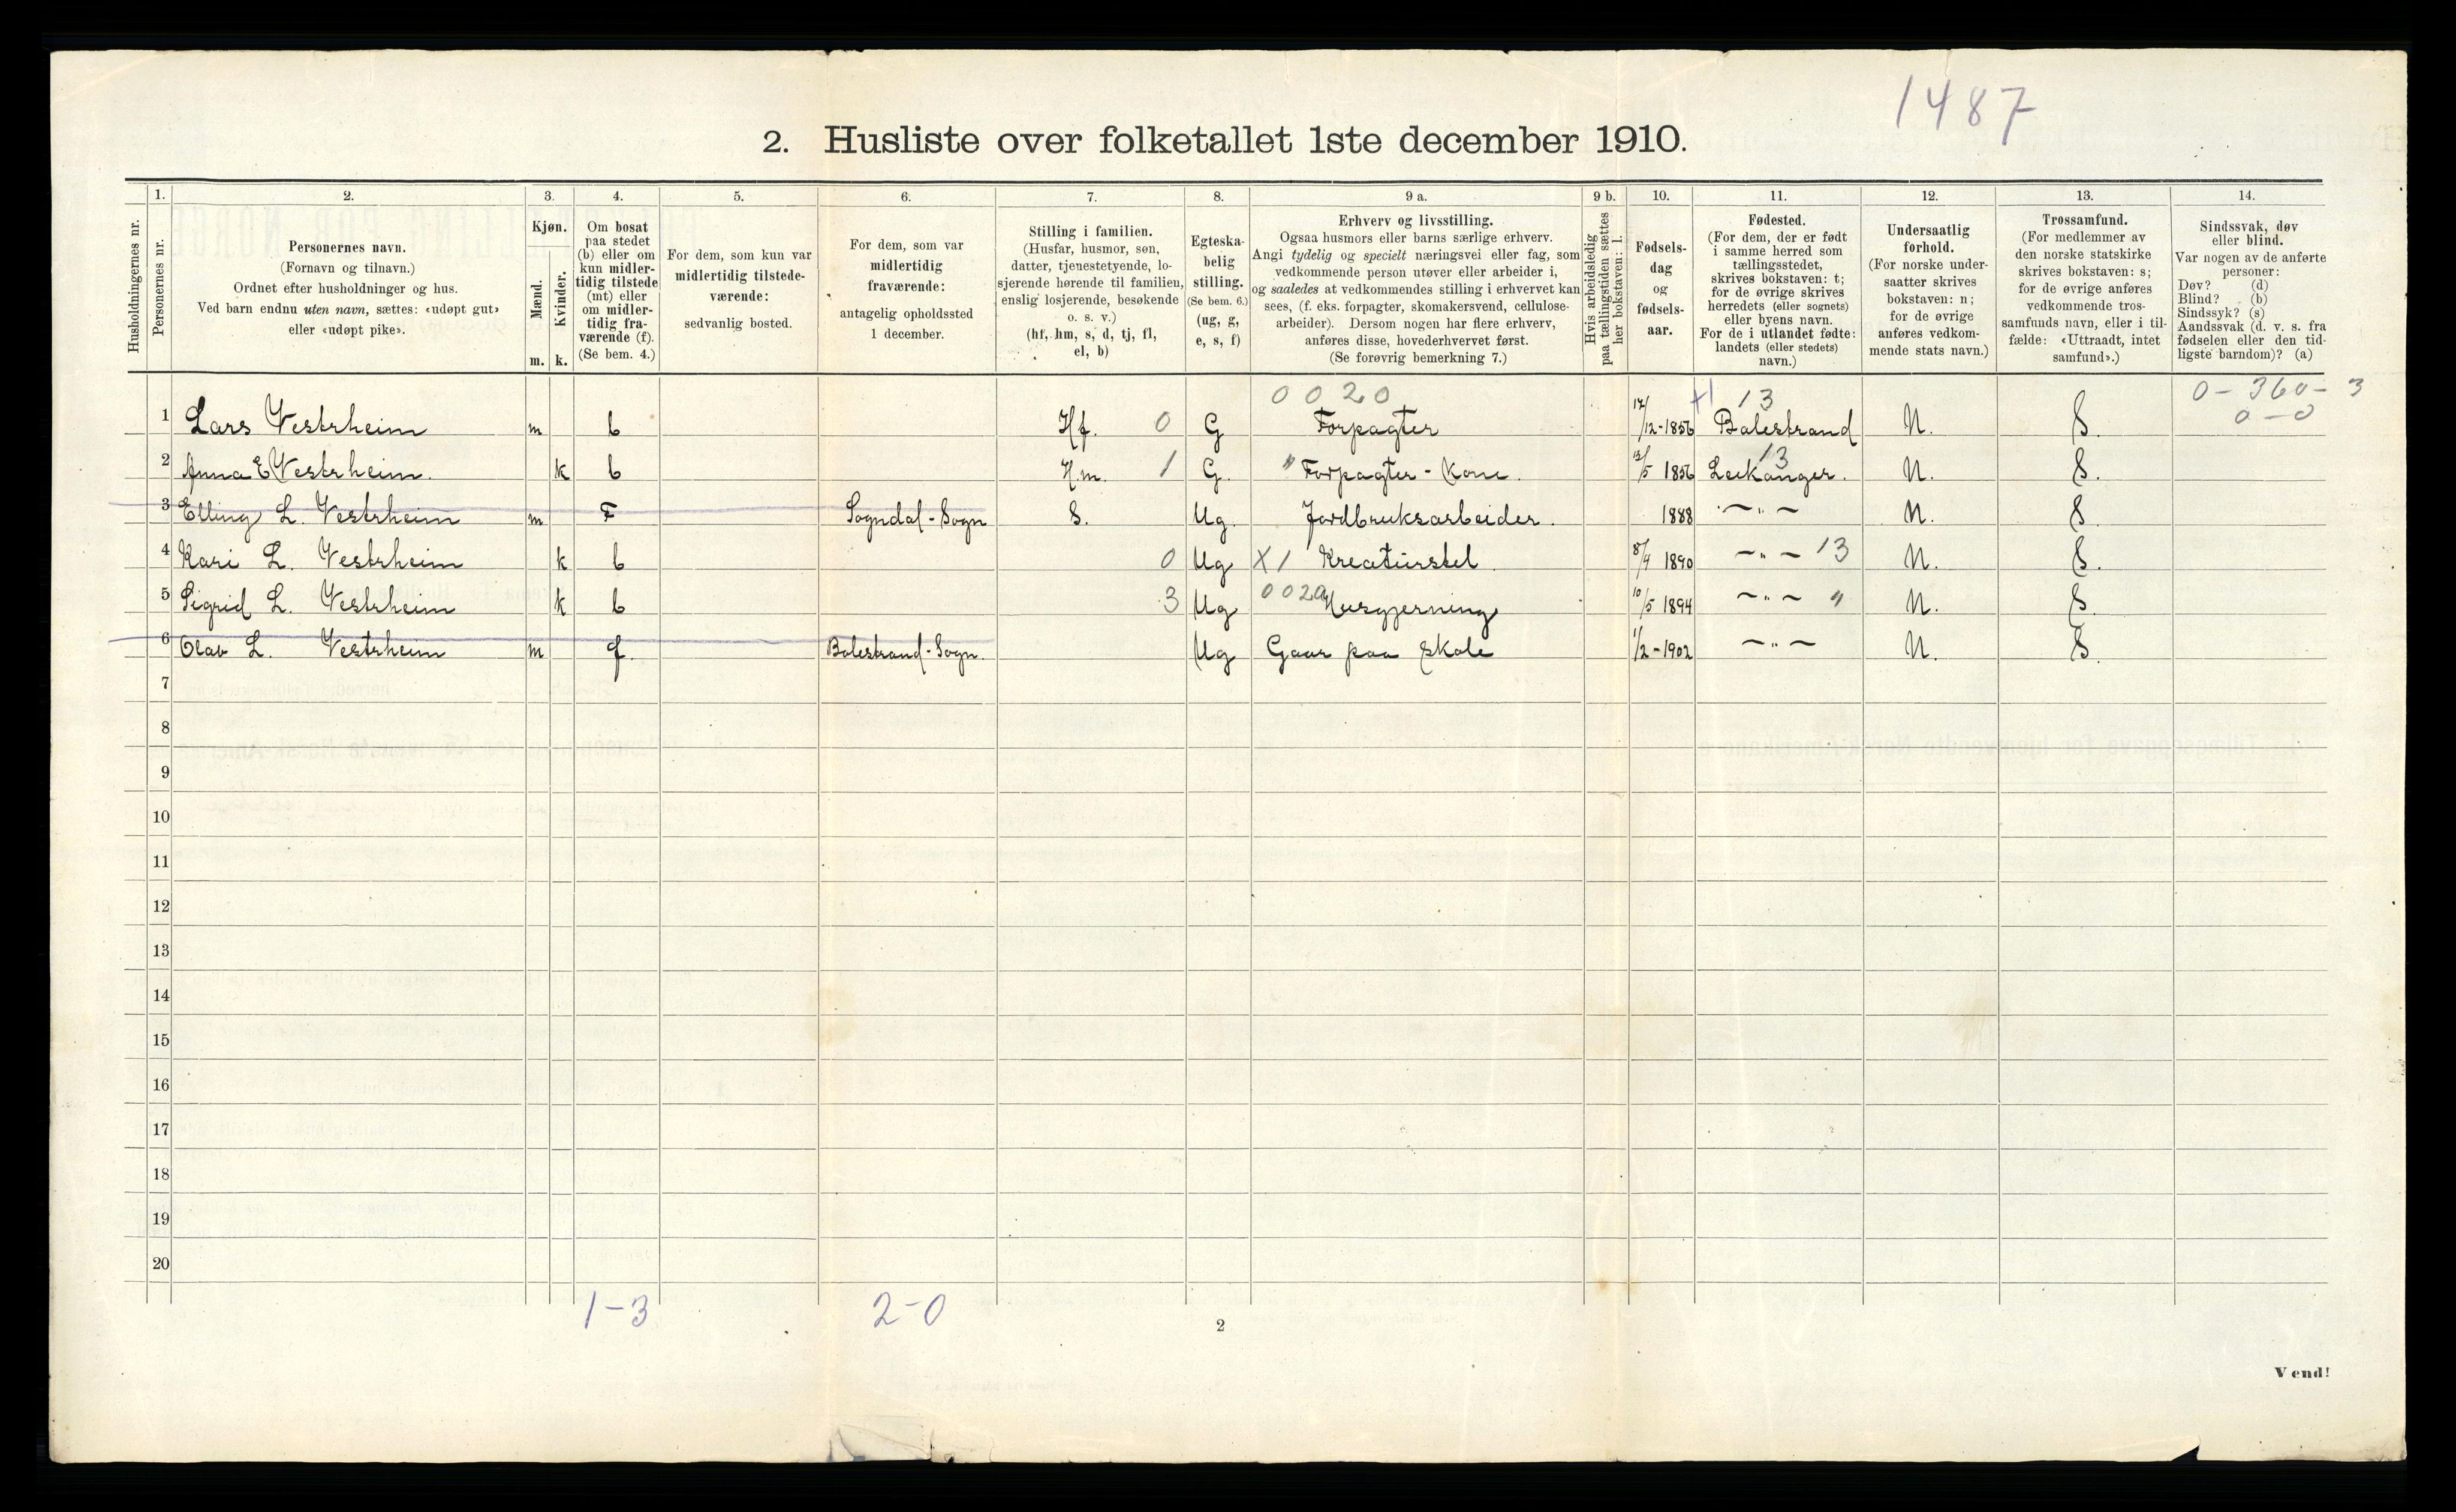 1487
2. Husliste over folketallet 1ste december 1910.
Husholdningernes nr.
1.
Personernes nr.
2.
Personernes navn.
(Fornavn og tilnavn.)
Ordnet efter husholdninger og hus.
Ved barn endnu uten navn, sættes: «udøpt gut»
eller «udøpt pike».
3.
Kjøn.
Mænd.
Kvinder.
m. k.
4.
Om bosat
paa stedet
(b) eller om
kun midler-
tidig tilstede
(mt) eller
om midler-
tidig fra-
værende (f).
(Se bem. 4.)
5.
For dem, som kun var
midlertidig tilstede-
værende:
sedvanlig bosted.
6.
For dem, som var
midlertidig
fraværende:
antagelig opholdssted
1 december.
7.
Stilling i familien.
(Husfar, husmor, søn,
datter, tjenestetyende, lo-
sjerende hørende til familien,
enslig losjerende, besøkende
o. s. v.)
(hf, hm, s, d, tj, fl,
el, b)
8.
Egteska-
belig
stilling.
(Se bem. 6.)
(ug, g,
e, s, f)
9 a.
Erhverv og livsstilling.
Ogsaa husmors eller barns særlige erhverv.
Angi tydelig og specielt næringsvei eller fag, som
vedkommende person utøver eller arbeider i,
og saaledes at vedkommendes stilling i erhvervet kan
sees, (f. eks. forpagter, skomakersvend, cellulose-
arbeider). Dersom nogen har flere erhverv,
anføres disse, hovederhvervet først.
(Se forøvrig bemerkning 7.)
9 b.
Hvis arbeidsledig
paa tællingstiden sættes
her bokstaven: l.
10.
Fødsels-
dag
og
fødsels-
aar.
11.
Fødested.
(For dem, der er født
i samme herred som
tællingsstedet,
skrives bokstaven: t;
for de øvrige skrives
herredets (eller sognets)
eller byens navn.
For de i utlandet fødte:
landets (eller stedets)
navn.)
12.
Undersaatlig
forhold.
(For norske under-
saatter skrives
bokstaven: n;
for de øvrige
anføres vedkom-
mende stats navn.)
13.
Trossamfund.
(For medlemmer av
den norske statskirke
skrives bokstaven: s;
for de øvrige anføres
vedkommende tros-
samfunds navn, eller i til-
fælde: «Uttraadt, intet
samfund».)
14.
Sindssvak, døv
eller blind.
Var nogen av de anførte
personer:
Døv? (d)
Blind? (b)
Sindssyk? (s)
Aandssvak (d. v. s. fra
fødselen eller den tid-
ligste barndom)? (a)
0 0 20 13 0-360-3
0-0
1 Lars Vestrheim m b Hf. 0 G Forpagter 17/12-1856 Balestrand N. S.
2 Anna E Vestrheim. k b H.m. 1 G. " Forpagter-Kone. 12/5 1856 13 Leikanger. N. S.
3 Elling L. Vestrheim m F Sogndal-Sogn S. Ug. Jordbruksarbeider. 1888 -"- N. S.
4 Kari L. Vestrheim k b 0 Ug X1 Kreaturstel 8/4 1890 -"- 13 N. S.
5 Sigrid L. Vestrheim k b 3 Ug 0020 Husgjerning 10/5 1894 -"- " N. S.
6 Olav L. Vestrheim m f. Balestrand-Sogn. Ug Gaar paa Skole 1/2-1902 -"- N. S.
7
8
9
10
11
12
13
14
15
16
17
18
19
20
1-3 2-0
2
Vend!